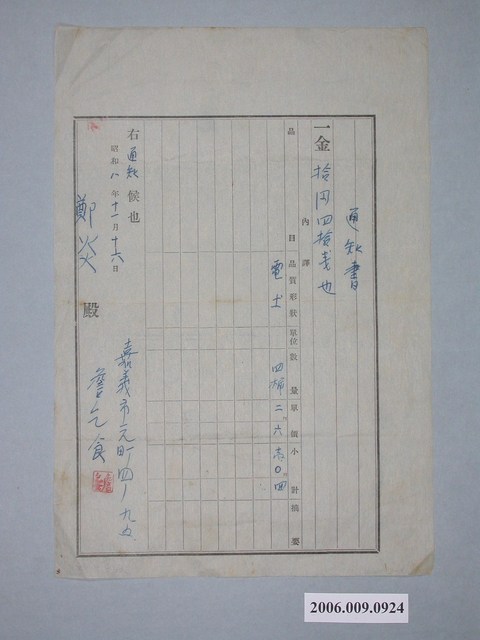 通知書
一金 拾円四拾戔也
內譯
品目 品質形狀 單位 數量 單價 小計 摘要
電土 四桶 二、六 壱〇、四
右通知候也
昭和八年十一月十六日
鄭炎 殿
嘉義市元町四ノ九五
詹乞食
2006.009.0924